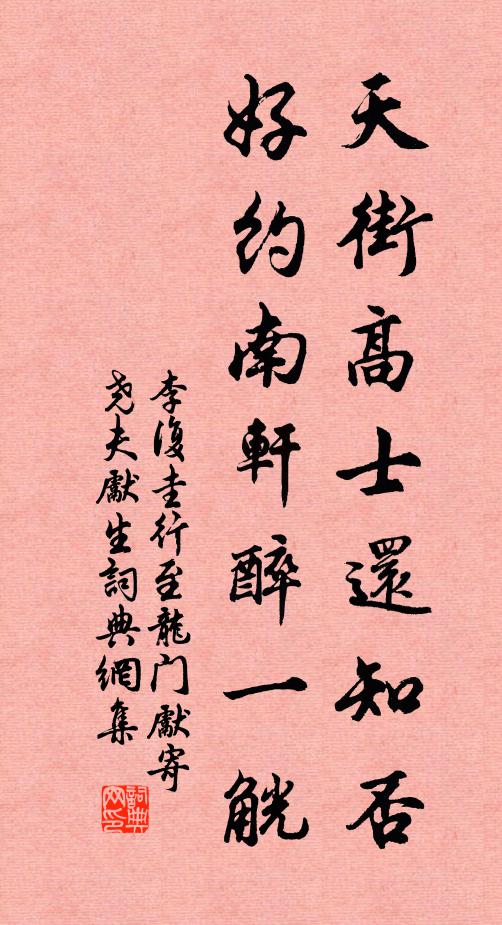 天街高士還知否
好約南軒醉一觥
李復圭行至龍门獻寄
尧夫獻生詞典網集
詞典网印